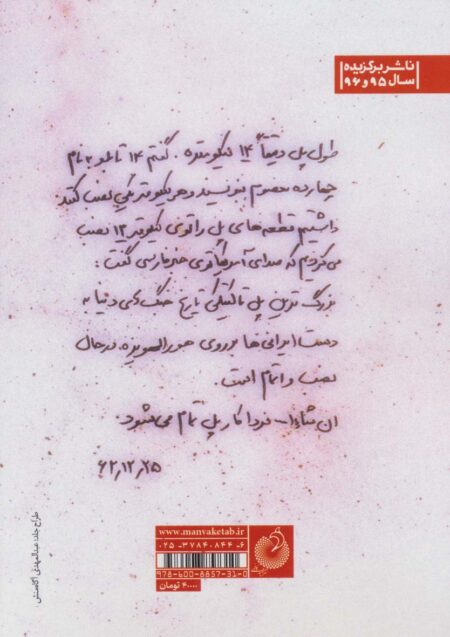 ناشر برگزیده
سال ۹۵ و ۹۶
طول پل دقیقاً ۱۴ کیلومتره. گفتم ۱۴ تابلو به نام
چهارده معصوم بنویسید و هر کیلومتر یکی نصب کنید.
داشتیم قطعه‌های پل را توی کیلومتر ۱۳ نصب
می‌کردیم که صدای آمریکا توی خبر فارسی گفت:
بزرگ ترین پل تاکتیکی تاریخ جنگ‌های دنیا به
دست ایرانی‌ها بر روی هورالهویزه، در حال
نصب و اتمام است.
ان شاءا... فردا کار پل تمام می‌شود.
۶۲,۱۲,۲۵
طراح جلد: عبدالمهدی آگاه‌منش
www.manvaketab.ir
۰۲۵-۳۷۸۴۰۸۴۴-۶
978-600-8857-31-0
۴۰۰۰۰ تومان